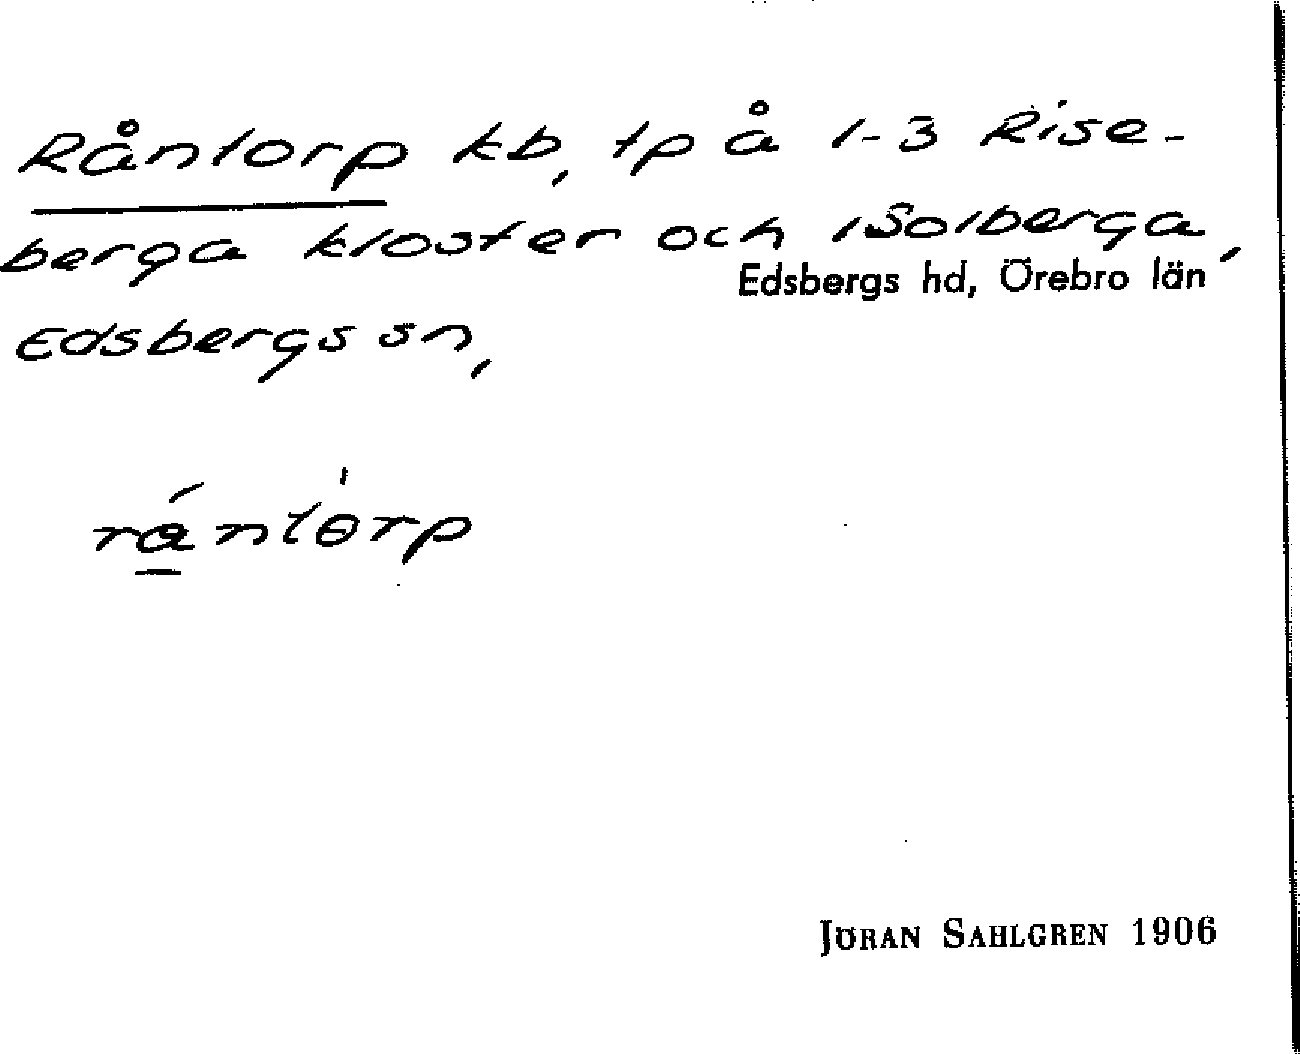 Råntorp kb, tp å 1-3 Rise-
berga kloster och 1 Solberga,
Edsbergs hd, Örebro län
Edsbergs sn,
rántòrp
JÖRAN SAHLGREN 1906